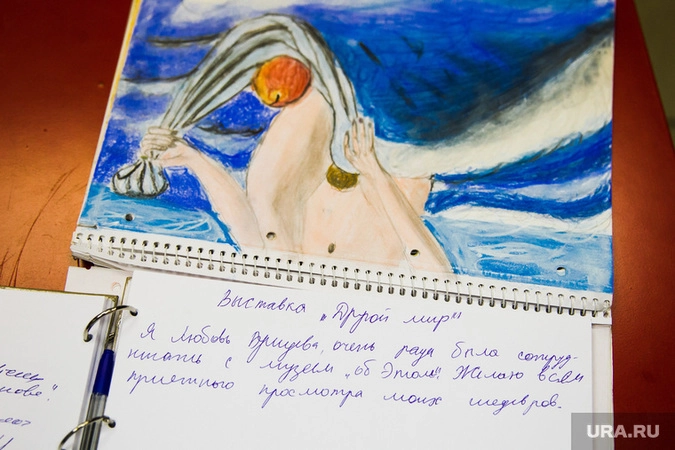 Выставка „Другой мир"
Я Любовь очень рада была сотруд-
ничать с музеем „об Этом". Желаю всем
приятного просмотра моих шедевров.
URA.RU